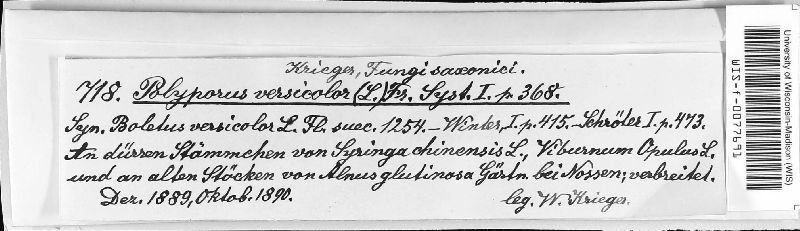 Krieger, Fungi saxonici.
718. Polyporus versicolor (L.) Fr. Syst. I. p. 368.
Syn. Boletus versicolor L. Fl. suec. 1254. – Winter, I. p. 415. – Schröter I. p. 473.
An dürren Stämmchen von Syringa chinensis L., Viburnum Opulus L.
und an alten Stöcken von Alnus glutinosa Gärtn. bei Nossen; verbreitet.
Dez. 1889, Oktob. 1890.
leg. W. Krieger.
University of Wisconsin-Madison (WIS)
WIS-f-0077691